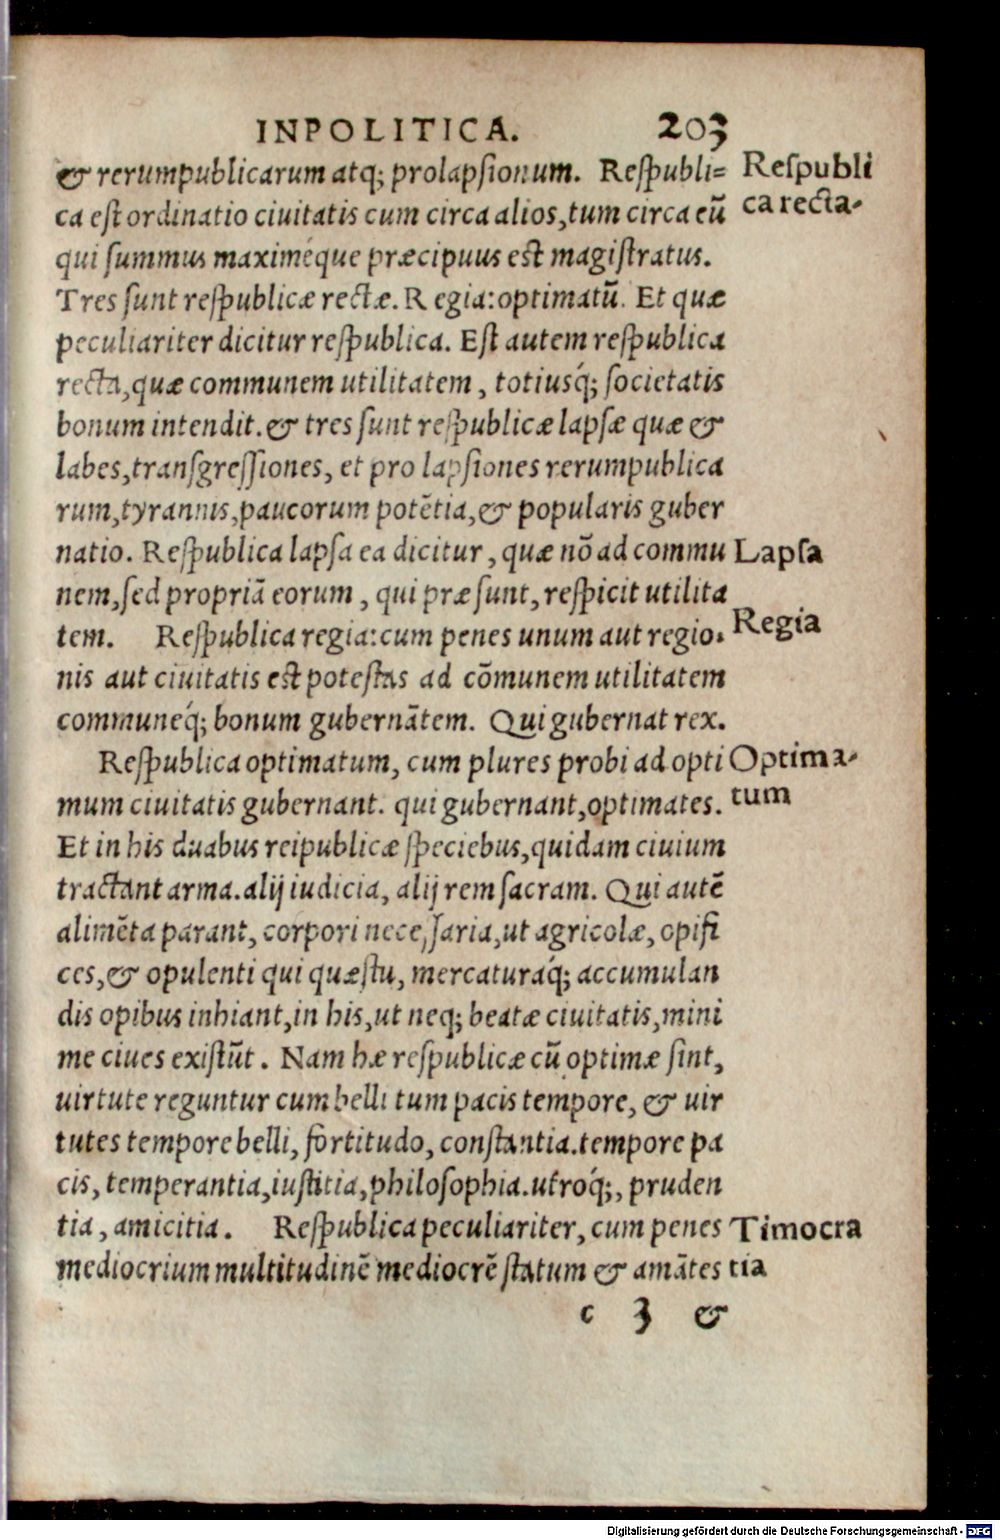 INPOLITICA. 203
& rerumpublicarum atq; prolapsionum. Respubli=
ca est ordinatio ciuitatis cum circa alios, tum circa eũ
qui summus maximéque præcipuus est magistratus.
Tres sunt respublicæ rectæ. Regia: optimatũ. Et quæ
peculiariter dicitur respublica. Est autem respublica
recta, quæ communem utilitatem, totiusq́; societatis
bonum intendit. & tres sunt respublicæ lapsæ quæ &
labes, transgressiones, et prolapsiones rerumpublica
rum, tyrannis, paucorum potẽtia, & popularis guber
natio. Respublica lapsa ea dicitur, quæ nõ ad commu
nem, sed propriã eorum, qui præsunt, respicit utilita
tem. Respublica regia: cum penes unum aut regio-
nis aut ciuitatis est potestas ad cõmunem utilitatem
communeq́; bonum gubernãtem. Qui gubernat rex.
Respublica optimatum, cum plures probi ad opti
mum ciuitatis gubernant. qui gubernant, optimates.
Et in his duabus reipublicæ speciebus, quidam ciuium
tractant arma. alij iudicia, alij rem sacram. Qui autẽ
alimẽta parant, corpori necessaria, ut agricolæ, opifi
ces, & opulenti qui quæstu, mercaturaq́; accumulan
dis opibus inhiant, in his, ut neq; beatæ ciuitatis, mini
me ciues existũt. Nam hæ respublicæ cũ optimæ sint,
uirtute reguntur cum belli tum pacis tempore, & uir
tutes tempore belli, fortitudo, constantia. tempore pa
cis, temperantia, iustitia, philosophia. utroq́;, pruden
tia, amicitia. Respublica peculiariter, cum penes
mediocrium multitudinẽ mediocrẽ statum & amãtes
c 3 &
Respubli
ca recta-
Lapsa
Regia
Optima-
tum
Timocra
tia
Digitalisierung gefördert durch die Deutsche Forschungsgemeinschaft - DFG